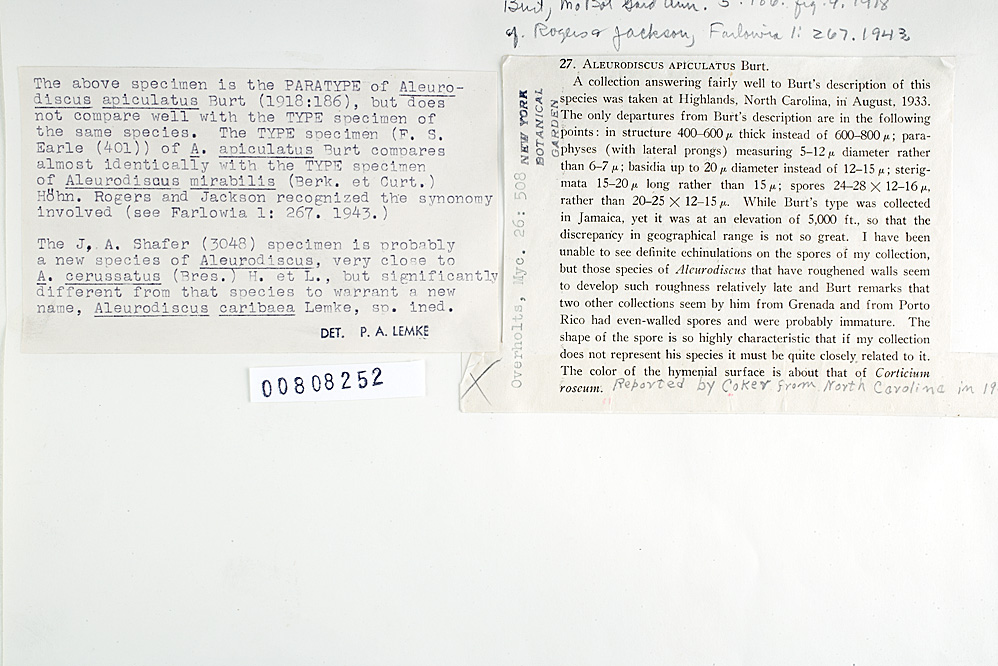 Burt, Mo Bot Gard Ann. 5: 186. fig. 9. 1918
cf. Rogers & Jackson, Farlowia 1: 267. 1943
The above specimen is the PARATYPE of Aleuro-
discus apiculatus Burt (1918:186), but does
not compare well with the TYPE specimen of
the same species. The TYPE specimen (F. S.
Earle (401)) of A. apiculatus Burt compares
almost identically with the TYPE specimen
of Aleurodiscus mirabilis (Berk. et Curt.)
Höhn. Rogers and Jackson recognized the synonomy
involved (see Farlowia 1: 267. 1943.)
The J. A. Shafer (3048) specimen is probably
a new species of Aleurodiscus, very close to
A. cerussatus (Bres.) H. et L., but significantly
different from that species to warrant a new
name, Aleurodiscus caribaea Lemke, sp. ined.
DET. P. A. LEMKE
00808252
NEW YORK
BOTANICAL
GARDEN
Overholts, Myc. 26: 508
27. ALEURODISCUS APICULATUS Burt.
A collection answering fairly well to Burt's description of this
species was taken at Highlands, North Carolina, in August, 1933.
The only departures from Burt's description are in the following
points: in structure 400–600 μ thick instead of 600–800 μ; para-
physes (with lateral prongs) measuring 5–12 μ diameter rather
than 6–7 μ; basidia up to 20 μ diameter instead of 12–15 μ; sterig-
mata 15–20 μ long rather than 15 μ; spores 24–28 × 12–16 μ,
rather than 20–25 × 12–15 μ. While Burt's type was collected
in Jamaica, yet it was at an elevation of 5,000 ft., so that the
discrepancy in geographical range is not so great. I have been
unable to see definite echinulations on the spores of my collection,
but those species of Aleurodiscus that have roughened walls seem
to develop such roughness relatively late and Burt remarks that
two other collections seen by him from Grenada and from Porto
Rico had even-walled spores and were probably immature. The
shape of the spore is so highly characteristic that if my collection
does not represent his species it must be quite closely related to it.
The color of the hymenial surface is about that of Corticium
roseum. Reported by Coker from North Carolina in 19
X